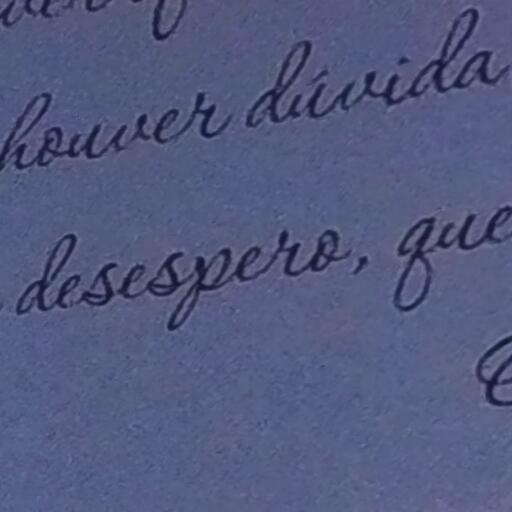 houver dúvida
desespero, que